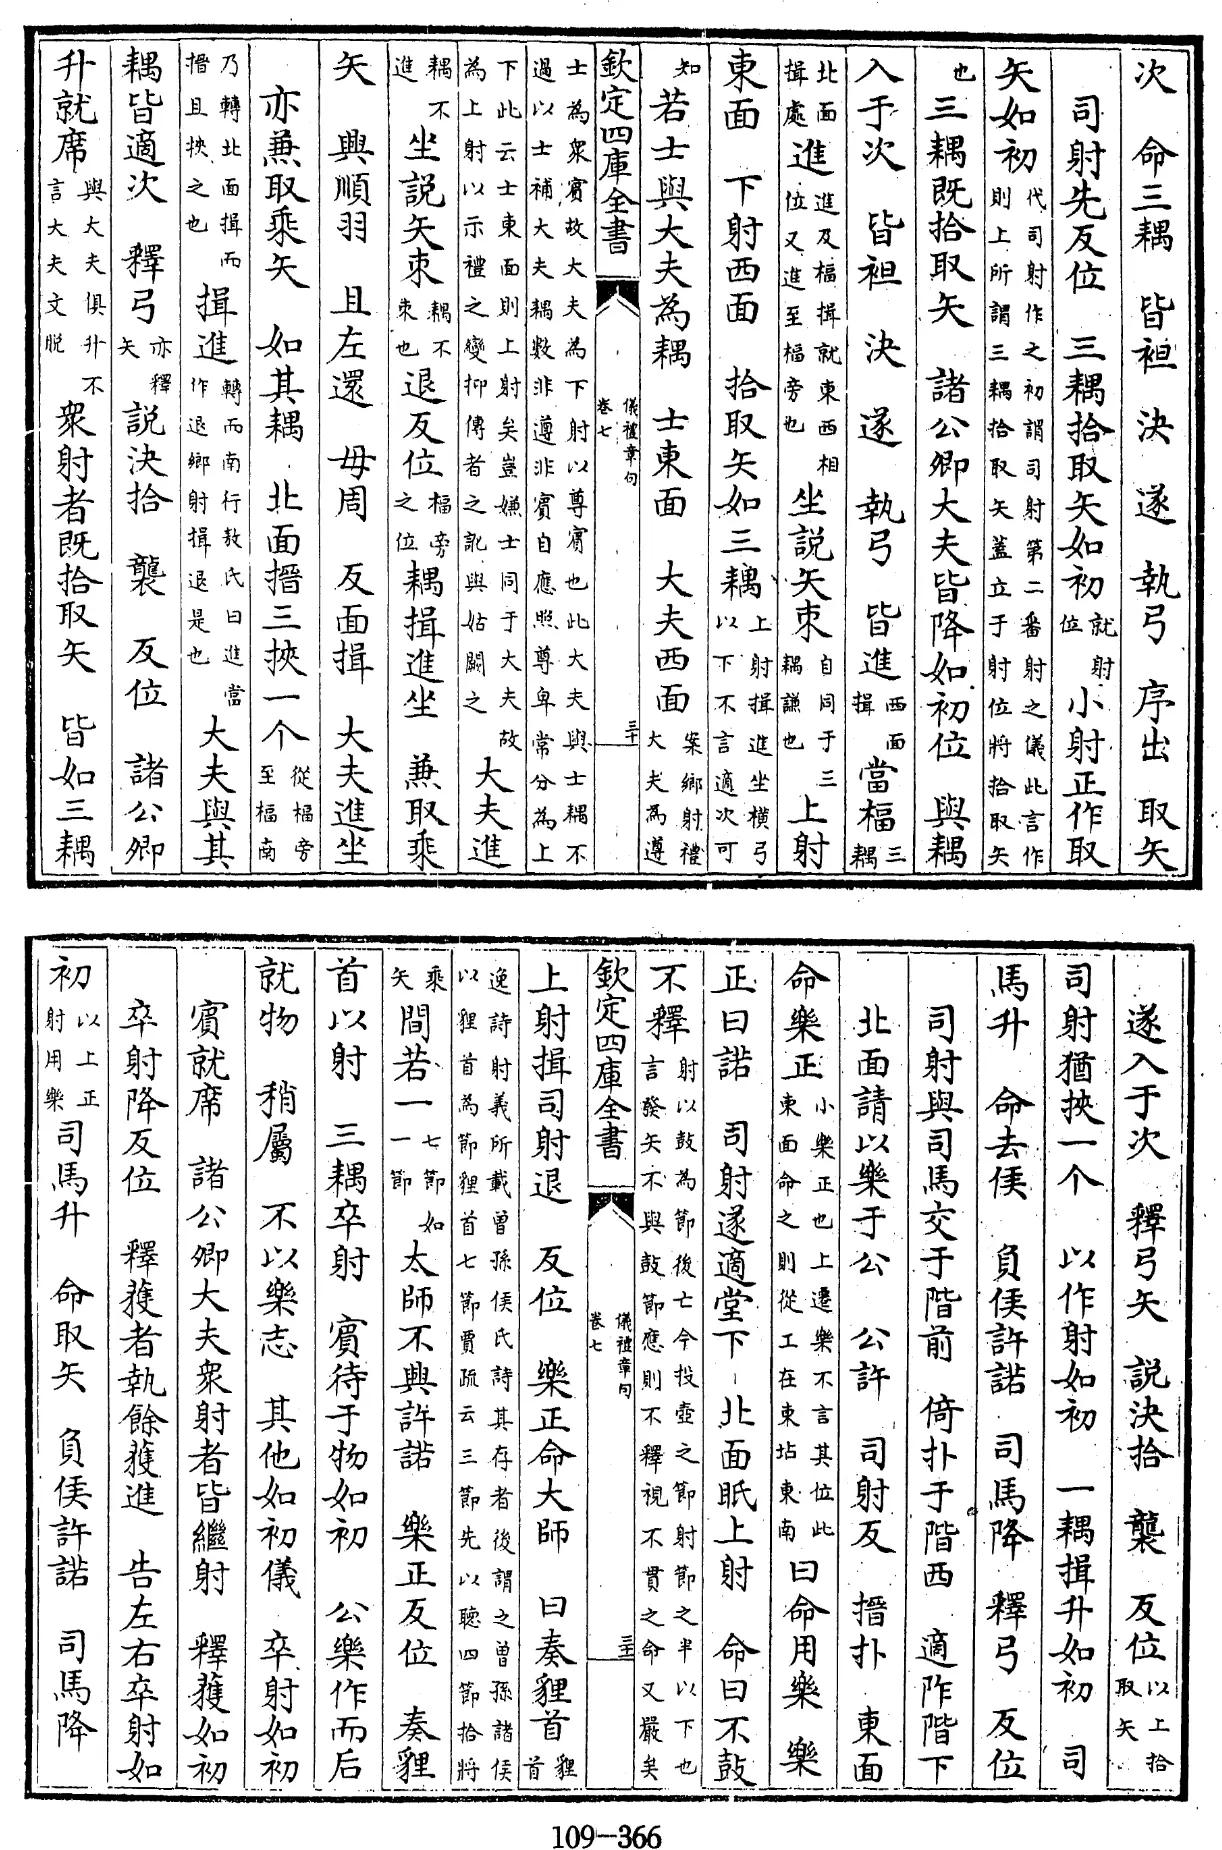 次　命三耦　皆袒　決　遂　執弓　序出　取矢
司射先反位　三耦拾取矢如初就射位小射正作取
矢如初代司射作之初謂司射第二番射之儀此言作則上所謂三耦拾取矢蓋立于射位將拾取矢
也三耦既拾取矢　諸公卿大夫皆降如初位　與耦
入于次　皆袒　決　遂　執弓　皆進西面揖當楅三耦
北面揖處進進及楅揖就東西相位又進至楅旁也坐説矢束自同于三耦謙也上射
東面　下射西面　拾取矢如三耦上射揖進坐橫弓以下不言適次可
知若士與大夫為耦　士東面　大夫西面案鄉射禮大夫為遵
欽定四庫全書　儀禮章句　卷七　三十
士為衆賓故大夫為下射以尊賓也此大夫與士耦不過以士補大夫耦數非遵非賓自應照尊卑常分為上
下此云士東面則上射矣豈嫌士同于大夫故為上射以示禮之變抑傳者之訛與姑闕之大夫進
耦不進坐説矢束耦不束也退反位楅旁之位耦揖進坐　兼取乘
矢　興順羽　且左還　毋周　反面揖　大夫進坐
亦兼取乘矢　如其耦　北面搢三挾一个從楅旁至楅南
乃轉北面揖而搢且挾之也揖進轉而南行敖氏曰進當作退鄉射揖退是也大夫與其
耦皆適次　釋弓亦釋矢説決拾　襲　反位　諸公卿
升就席與大夫俱升不言大夫文脱衆射者既拾取矢　皆如三耦
遂入于次　釋弓矢　説決拾　襲　反位以上拾取矢
司射猶挾一个　以作射如初　一耦揖升如初　司
馬升　命去侯　負侯許諾　司馬降　釋弓　反位
司射與司馬交于階前　倚扑于階西　適阼階下
北面請以樂于公　公許　司射反　搢扑　東面
命樂正小樂正也上遷樂不言其位此東面命之則從工在東坫東南曰命用樂　樂
正曰諾　司射遂適堂下　北面眂上射　命曰不鼓
不釋射以鼓為節後亡今投壺之節射節之半以下也言發矢不與鼓節應則不釋視不貫之命又嚴矣
欽定四庫全書　儀禮章句　卷七　三十一
上射揖司射退　反位　樂正命大師　曰奏貍首貍首
逸詩射義所載曾孫侯氏詩其存者後謂之曾孫諸侯以貍首為節貍首七節賈疏云三節先以聽四節拾將
乘矢間若一七節如一節太師不興許諾　樂正反位　奏貍
首以射　三耦卒射　賓待于物如初　公樂作而后
就物　稍屬　不以樂志　其他如初儀　卒射如初
賓就席　諸公卿大夫衆射者皆繼射　釋獲如初
卒射降反位　釋獲者執餘獲進　告左右卒射如
初以上正射用樂司馬升　命取矢　負侯許諾　司馬降
109-366